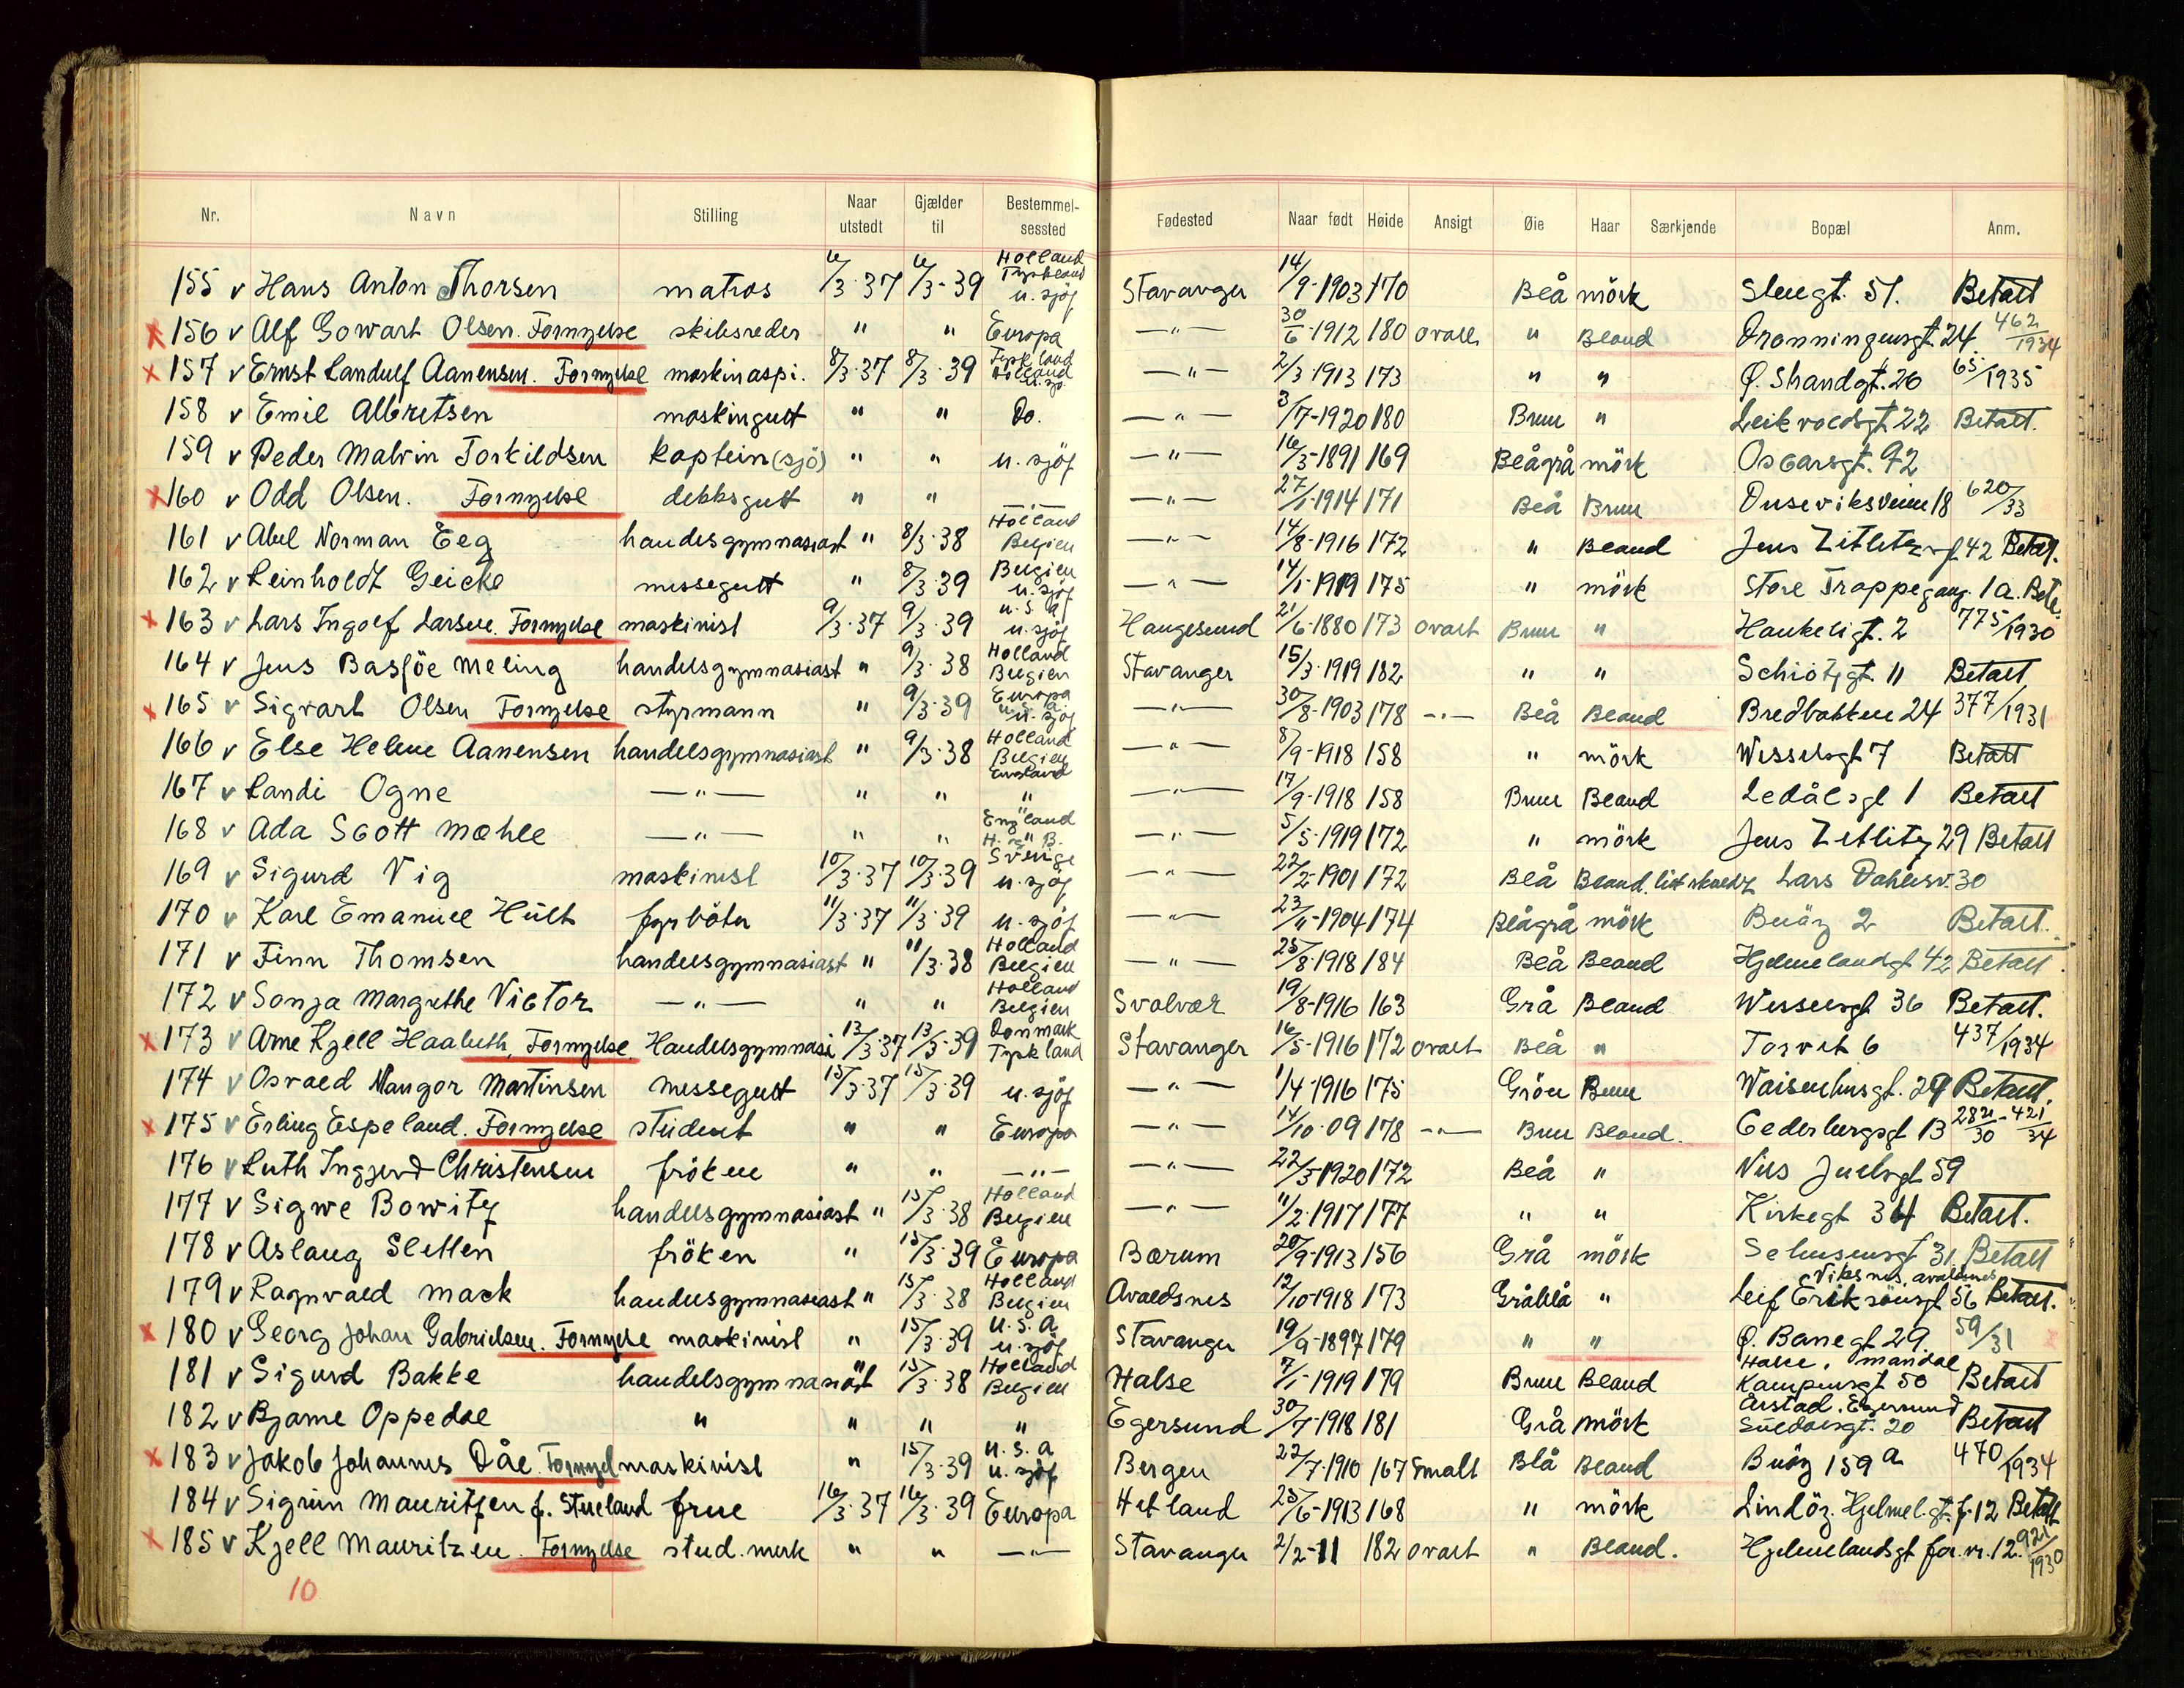 Nr. Navn Stilling Naar utstedt Gjælder til Bestemmelsessted Fødested Naar født Høide Ansigt Øie Haar Særkjende Bopæl Anm.
155 v Hans Anton Thorsen matros 6/3-37 6/3-39 Holland Tyskland u. sjöf Stavanger 14/9-1903 170 Blå mörk 51. Betalt
x 156 v Alf Gowart Olsen. Fornyelse skibsreder " " Europa —"— 30/6-1912 180 ovalt " Bland Dronningensgt 24 462/1934
x 157 v Ernst Landulf Aanensen. Fornyelse maskinaspi. 8/3-37 8/3-39 Tyskland Holland u. sjö. —"— 2/3-1913 173 " " Ø. Strandgt. 26 65/1935
158 v Emil Albretsen maskingutt " " Do. —"— 3/7-1920 180 Brun " Leikvoldsgt 22 Betalt.
159 v Peder Malvin Torkildsen kaptein (sjö) " " u. sjöf —"— 16/5-1891 169 Blågrå mörk Oscarsgt. 92
x 160 v Odd Olsen. Fornyelse dekksgutt " " —"— —"— 27/1-1914 171 Blå Brun Duseviksveien 18 620/33
161 v Abel Norman Eeg handelsgymnasiast " 8/3-38 Holland Belgien —"— 14/8-1916 172 " Bland Jens Zetlitzgt 42 Betalt.
162 v Reinholdt Geicke messegutt " 8/3-39 Belgien u. sjöf —"— 14/1-1919 175 " mörk Store Trappegang. 1a. Bet.
x 163 v Lars Ingolf Larsen. Fornyelse maskinist 9/3-37 9/3-39 U.S.A u. sjöf Haugesund 21/6-1880 173 ovalt Brun " Haukeligt. 2 775/1930
164 v Jens Basföe Meling handelsgymnasiast " 9/3-38 Holland Belgien Stavanger 15/3-1919 182 " " Schiötzgt. 11 Betalt
x 165 v Sigvart Olsen Fornyelse styrmann " 9/3-39 Europa U.S.A. u. sjöf —"— 30/8-1903 178 —"— Blå Bland Bredbakken 24 377/1931
166 v Else Helene Aanensen handelsgymnasiast " 9/3-38 Holland Belgien England —"— 8/9-1918 158 " mörk Wesselsgt 7 Betalt
167 v Randi Ogne —"— " " " —"— 17/9-1918 158 Brun Bland Ledålsgt 1 Betalt
168 v Ada Scott Mæhle —"— " " England H. og B. —"— 5/5-1919 172 " mörk Jens Zetlitz 29 Betalt
169 v Sigurd Vig maskinist 10/3-37 10/3-39 Sverige u. sjöf —"— 22/2-1901 172 Blå Bland. litt skaldz Lars Dahlesv. 30
170 v Karl Emanuel Hult fyrböter 11/3-37 11/3-39 u. sjöf —"— 23/11-1904 174 Blågrå mörk Buöy 2 Betalt.
171 v Finn Thomsen handelsgymnasiast " 11/3-38 Holland Belgien —"— 25/8-1918 184 Blå Bland Hjelmelandsgt 42 Betalt.
172 v Sonja Margrethe Victor —"— " " Holland Belgien Svolvær 19/8-1916 163 Grå Bland Wesselsgt 36 Betalt.
x 173 v Arne Kjell Haaluth, Fornyelse. Handelsgymnasi 13/3-37 13/3-39 Danmark Tyskland Stavanger 16/5-1916 172 ovalt Blå " Torvet 6 437/1934
174 v Osvald Nangor Martinsen messegutt 15/3-37 15/3-39 u. sjöf —"— 1/4-1916 175 Grön Brun Waisenhusgt. 29 Betalt.
x 175 v Erling Espeland. Fornyelse student " " Europa —"— 14/10-09 178 —"— Brun Bland. Cederbergsgt 13 2821/30 - 421/34
176 v Ruth Ingjerd Christensen fröken " " —"— —"— 22/5-1920 172 Blå " Nils Juelsgt 59
177 v Sigwe Bowitz handelsgymnasiast " 15/3-38 Holland Belgien —"— 11/2-1917 177 " " Kirkegt 34 Betalt.
178 v Aslaug Sletten fröken " 15/3-39 Europa Bærum 20/9-1913 156 Grå mörk Sehusensgt 31. Betalt
179 v Ragnvald Mack handelsgymnasiast " 15/3-38 Holland Belgien Avaldsnes 12/10-1918 173 Gråblå " Viksnes, avaldsnes Leif Eriksönsgt 56 Betalt.
x 180 v Georg Johan Gabrielsen. Fornyelse maskinist " 15/3-39 U.S.A u. sjöf Stavanger 19/9-1897 179 " " Ø. Banegt 29. 59/31
181 v Sigurd Bakke handelsgymnasiast " 15/3-38 Holland Belgien Halse 7/1-1919 179 Brun Bland Halse, mandal Kampensgt 50 Betalt
182 v Bjarne Oppedal " " " " Egersund 30/7-1918 181 Grå mörk Årstad, Egersund Suldalsgt. 20 Betalt
x 183 v Jakob Johannes Dåe. Fornyel maskinist " 15/3-39 U.S.A u. sjöf Bergen 22/7-1910 167 Smalt Blå Bland Buöy 159 a 470/1934
184 v Sigrun Mauritzen f. Stueland frue 16/3-37 16/3-39 Europa Hetland 25/6-1913 168 " mörk Lindöz. Hjelmel.gt. f. 12 Betalt
x 185 v Kjell Mauritzen. Fornyelse stud. merk " " —"— Stavanger 2/2-11 182 ovalt " Bland. Hjelmelandsgt for. nr. 12. 921/1930
10